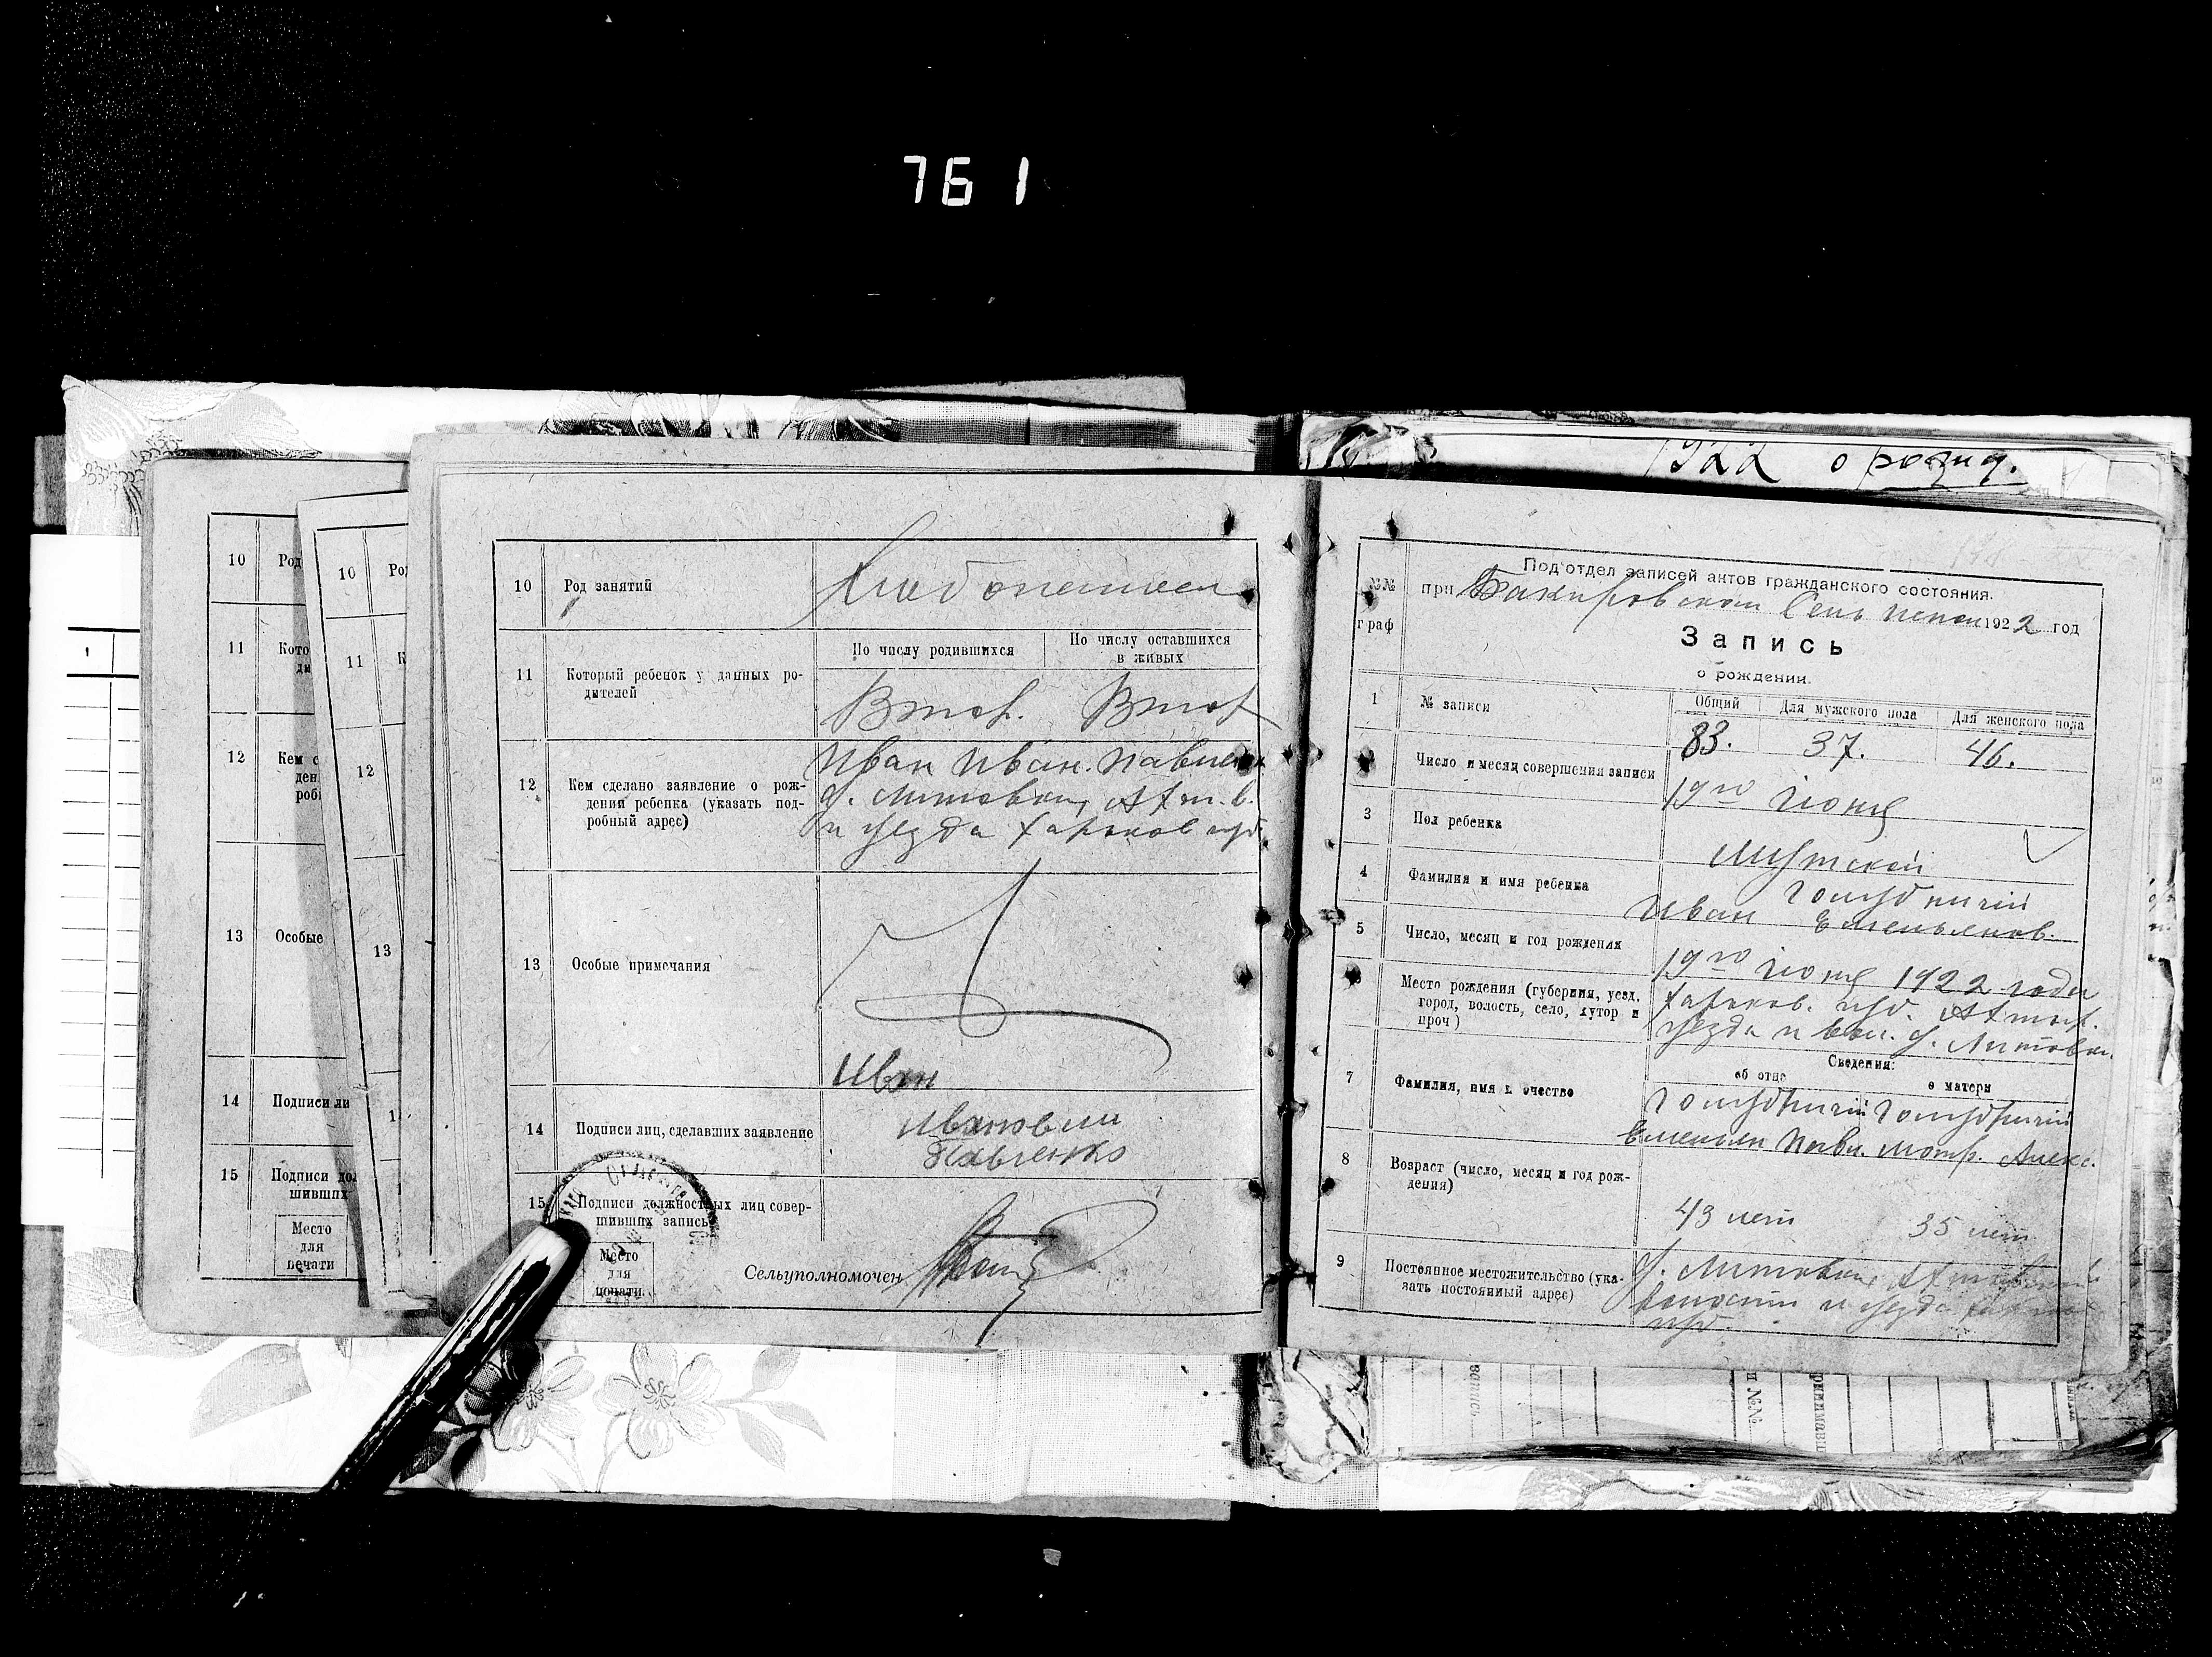 761
1922 о рожд.
10 Род занятий Хлебопашец
11 Который ребенок у данных ро-
дителей
По числу родившихся
По числу оставшихся
в живых
Втор. Втор
12 Кем сделано заявление о рож-
дении ребенка (указать под-
робный адрес)
Иван Иван. Павленко
с. Литовки, Ахт. в.
и уезда Харьков губ.
13 Особые примечания
14 Подписи лиц, сделавших заявление
Иван
Иванович
Павленко
15 Подписи должностных лиц совер-
шивших запись
Место
для
печати.
Сельуполномочен
10
11
12
13 Особые
14 Подписи ли
15 Подписи дол
шивших
Место
для
печати
10
11
12
13
1
№№
граф
Под'отдел записей актов гражданского состояния.
при Бакировском 1922 год
Запись
о рождении.
1 № записи
Общий Для мужского пола Для женского пола
83. 37. 46.
Число и месяц совершения записи 19го июня
3 Пол ребенка Мужской
4 Фамилия и имя ребенка
Иван Емельянов.
5 Число, месяц и год рождения 19го июня 1922 года
Место рождения (губерния, уезд,
город, волость, село, хутор и
проч)
Харьков. губ. Ахтыр.
уезда и вол. с. Литовки.
7 Фамилия, имя и очество
Сведения:
об отце о матери
Емельян Павл. Мотр. Алекс.
8 Возраст (число, месяц и год рож-
дения)
43 лет 35 лет
9 Постоянное местожительство (ука-
зать постоянный адрес)
с. Литовки, Ахтырской
волости и уезда Харьков
губ.